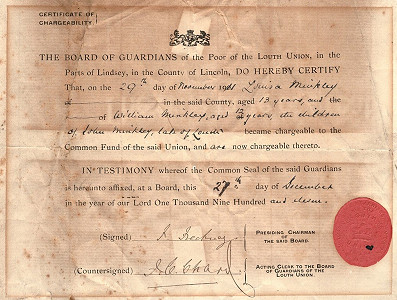 CERTIFICATE OF
CHARGEABILITY
THE BOARD OF GUARDIANS of the Poor of the LOUTH UNION, in the
Parts of Lindsey, in the County of Lincoln, DO HEREBY CERTIFY
That, on the 29th day of November 1911 Louisa Minkley
in the said County, aged 13 years, and
of William Minkley, aged years, the children
of John Minkley, late of Louth became chargeable to the
Common Fund of the said Union, and are now chargeable thereto.
IN TESTIMONY whereof the Common Seal of the said Guardians
is hereunto affixed, at a Board, this 27th day of December
in the year of our Lord One Thousand Nine Hundred and eleven.
(Signed)
PRESIDING CHAIRMAN
OF
THE SAID BOARD.
(Countersigned)
ACTING CLERK TO THE BOARD
OF GUARDIANS OF THE
LOUTH UNION.